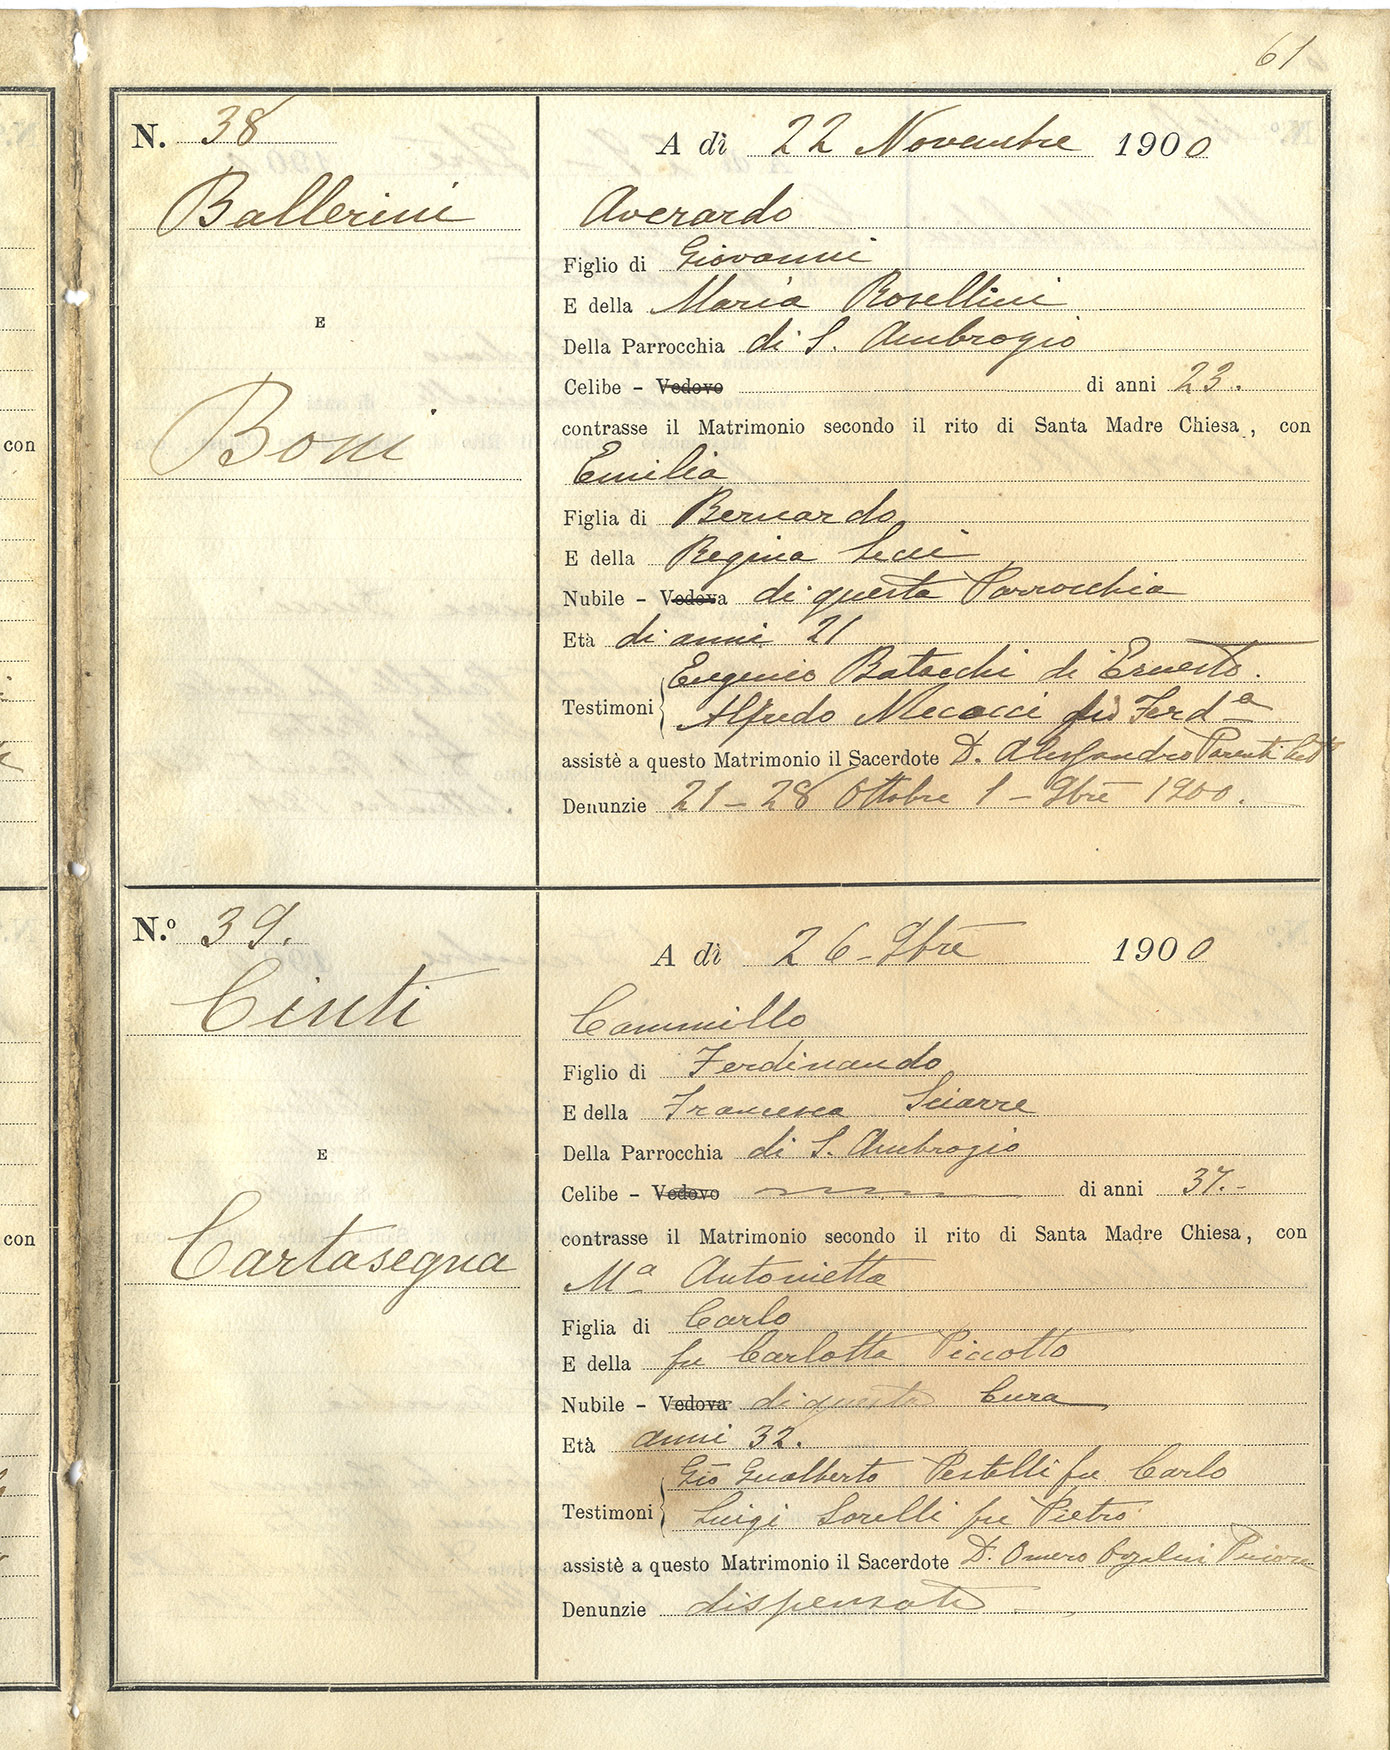 61
N. 38
A dì 22 Novembre 1900
Ballerini
Averardo
Figlio di Giovanni
E della Maria Rosellini
E
Della Parrocchia di S. Ambrogio
Celibe - Vedovo di anni 23.
contrasse il Matrimonio secondo il rito di Santa Madre Chiesa, con
Boni
Emilia
Figlia di Bernardo
E della Regina
Nubile - Vedova di questa Parrocchia
Età di anni 21
Eugenio Batacchi di Ernesto.
Testimoni
Alfredo Mecacci fu Ferd.a
assistè a questo Matrimonio il Sacerdote D. Alessandro Parenti
Denunzie 21 - 28 Ottobre 1 - 9bre 1900.
N.o 39.
A dì 26 - 9bre 1900
Cinti
Cammillo
Figlio di Ferdinando
E della Francesca Sciarre
E
Della Parrocchia di S. Ambrogio
Celibe - Vedovo di anni 37.-
contrasse il Matrimonio secondo il rito di Santa Madre Chiesa, con
Cartasegna
Ma Antonietta
Figlia di Carlo
E della fu Carlotta Piccotto
Nubile - Vedova di questa Cura
Età anni 32.
Gio Gualberto Pestelli fu Carlo
Testimoni
Luigi Sorelli fu Pietro
assistè a questo Matrimonio il Sacerdote D. Omero Priore
Denunzie dispensati
con
con